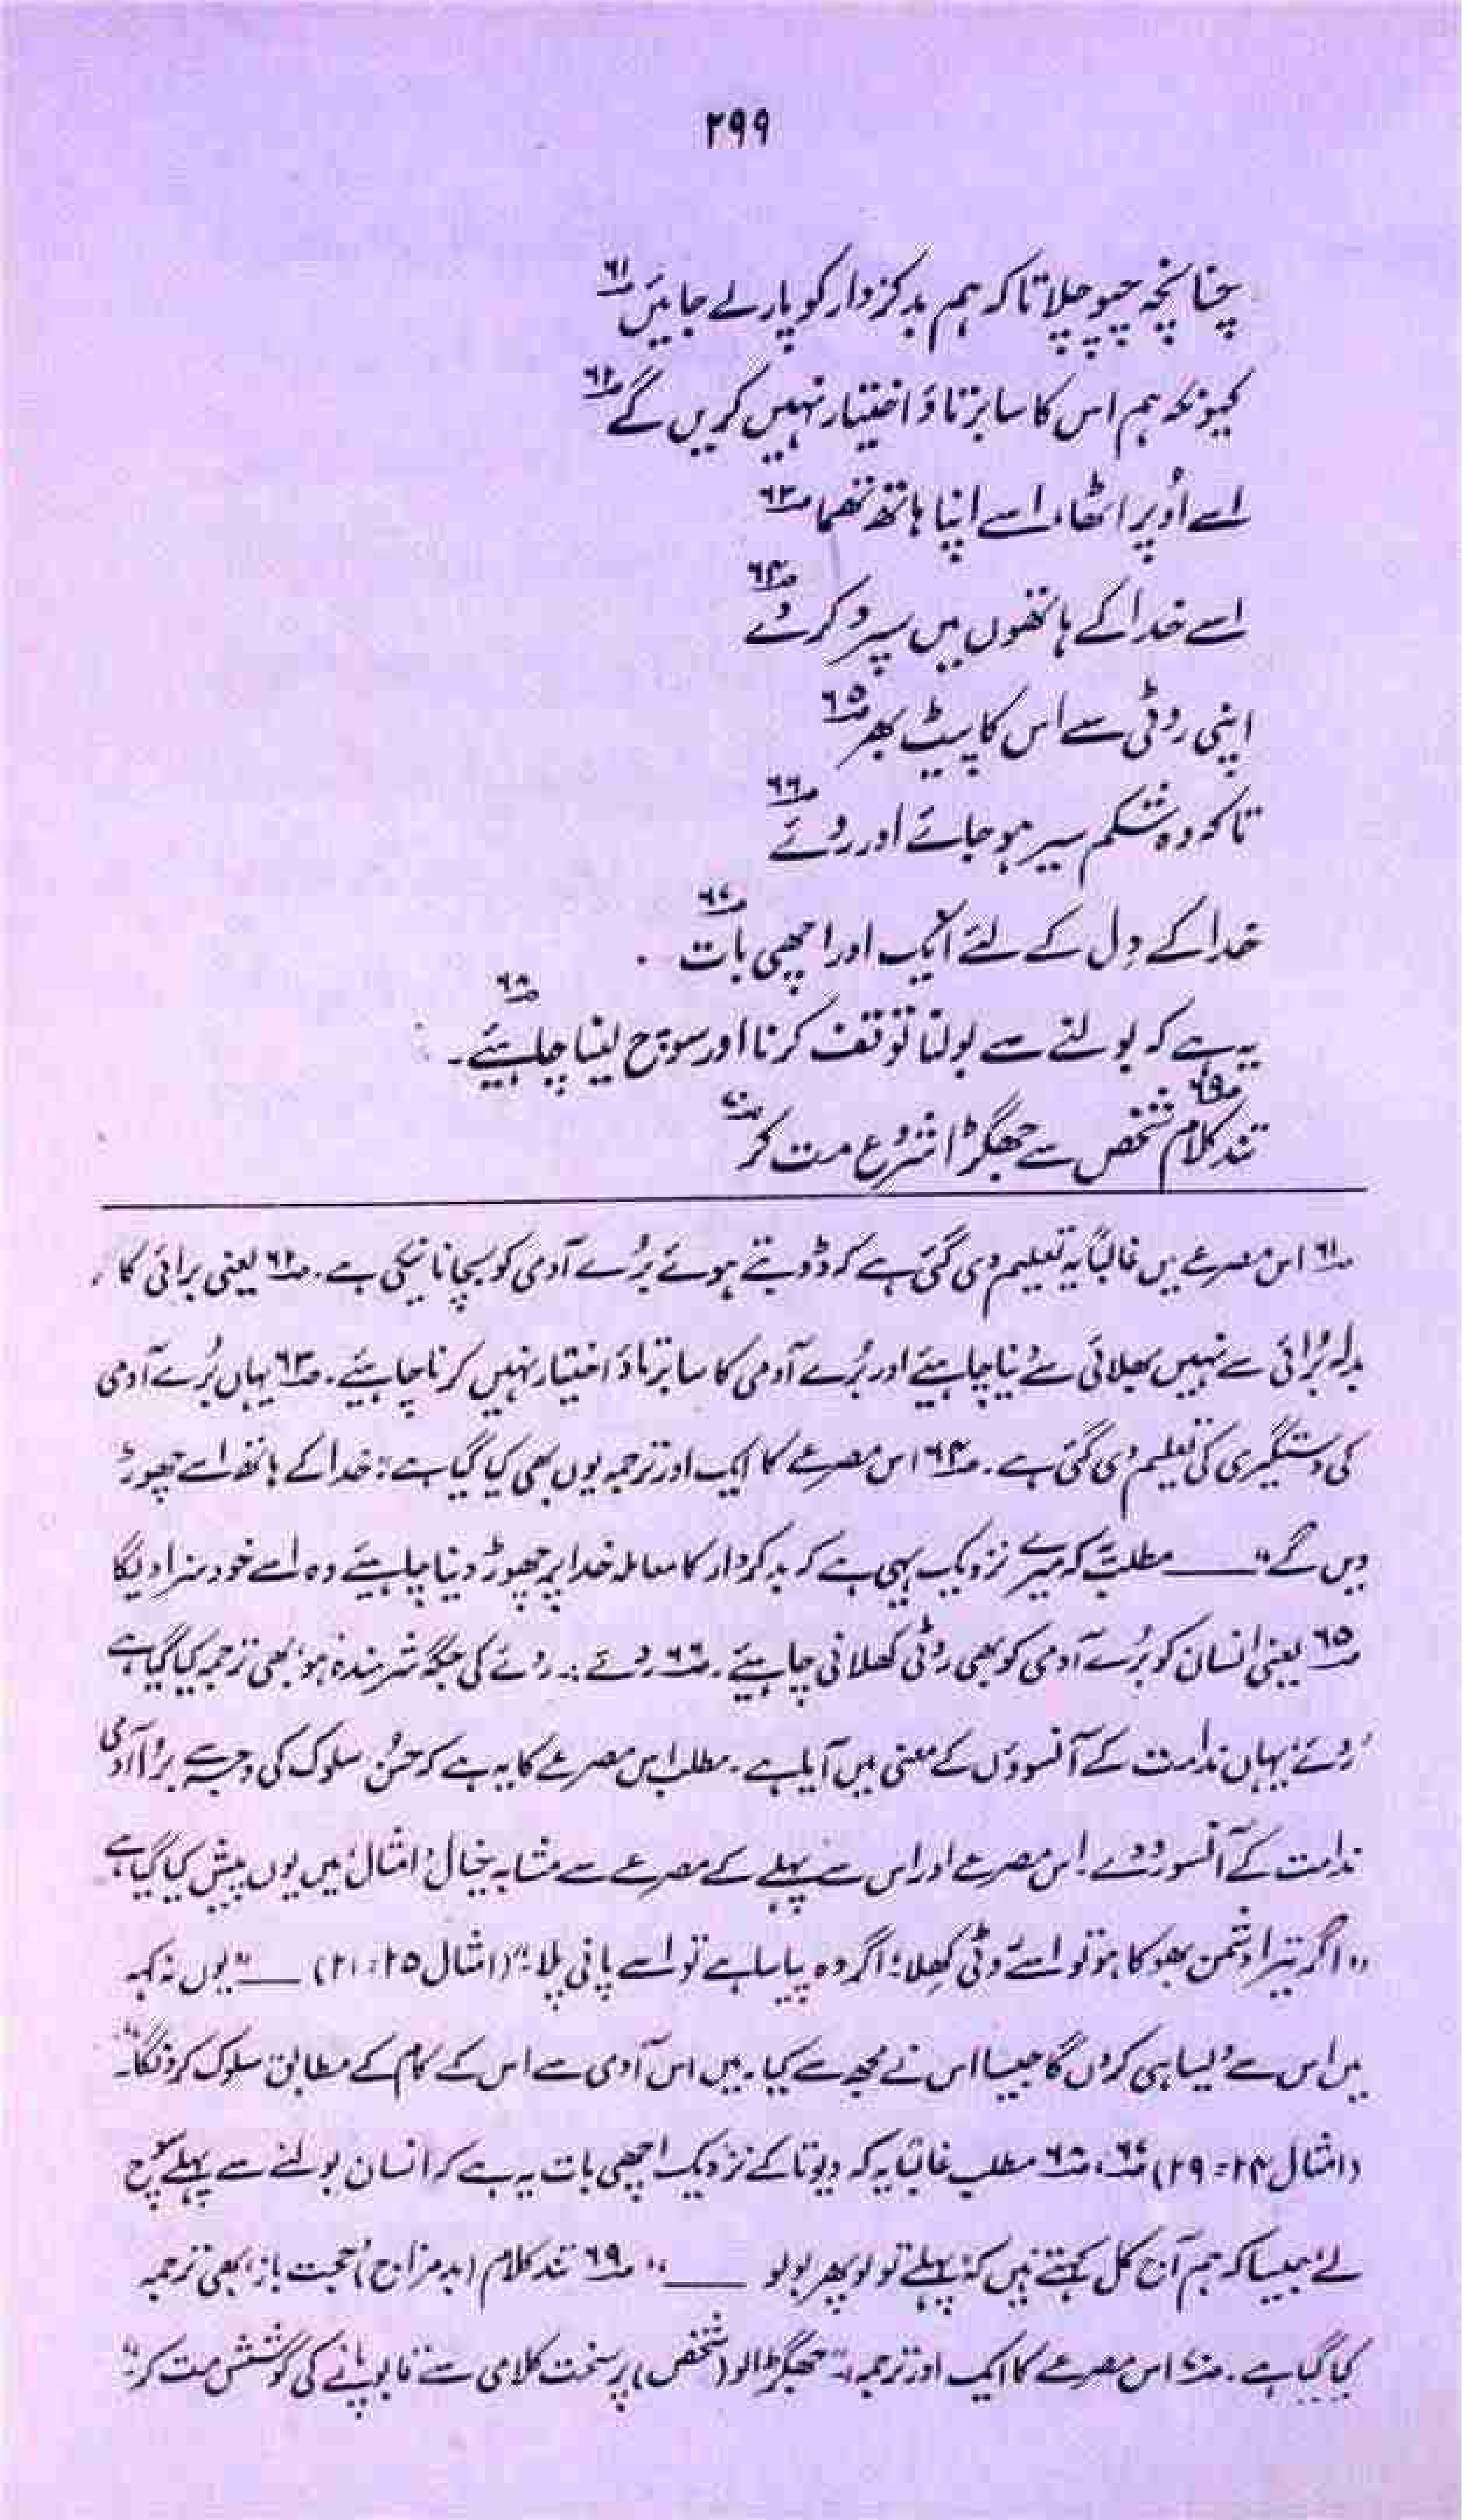 ۲۹۹
چنانچہ چپو چلا تاکہ ہم بدکردار کو پار لے جائیں ؎۶۱
کیونکہ ہم اس کا سا برتاؤ اختیار نہیں کریں گے ؎۶۲
اسے اُوپر اٹھا، اسے اپنا ہاتھ تھما ؎۶۳
اسے خدا کے ہاتھوں میں سپرد کر دے ؎۶۴
اپنی روٹی سے اس کا پیٹ بھر ؎۶۵
تاکہ وہ شکم سیر ہو جائے اور روئے ؎۶۶
خدا کے دِل کے لئے ایک اور اچھی بات ؎۶۷
یہ ہے کہ بولنے سے بولنا توقف کرنا اور سوچ لینا چاہیئے ؎۶۸۔
تند کلام ؎۶۹ شخص سے جھگڑا شروع مت کر ؎۷۰
؎۶۱ اس مصرعے میں غالباً یہ تعلیم دی گئی ہے کہ ڈوبتے ہوئے بُرے آدمی کو بچانا نیکی ہے۔ ؎۶۲ یعنی برائی کا
بدلہ بُرائی سے نہیں بھلائی سے دینا چاہیئے اور بُرے آدمی کا سا برتاؤ اختیار نہیں کرنا چاہیئے۔ ؎۶۳ یہاں بُرے آدمی
کی دستگیری کی تعلیم دی گئی ہے۔ ؎۶۴ اس مصرعے کا ایک اور ترجمہ یوں بھی کیا گیا ہے: خدا کے ہاتھ اسے چھوڑ
دیں گے" ـــــ مطلب کہ میرے نزدیک یہی ہے کہ بدکردار کا معاملہ خدا پر چھوڑ دینا چاہیئے وہ اسے خود سزا دیگا
؎۶۵ یعنی انسان کو بُرے آدمی کو بھی روٹی کھلانی چاہیئے۔ ؎۶۶ روئے :۔ روئے کی جگہ شرمندہ ہو، بھی ترجمہ کیا گیا ہے
'روئے' یہاں ندامت کے آنسوؤں کے معنی میں آیا ہے۔ مطلب اس مصرعے کا یہ ہے کہ حسنُ سلوک کی وجہ سے برُا آدمی
ندامت کے آنسو رو دے۔ اس مصرعے اور اس سے پہلے کے مصرعے سے مشابہ خیال 'امثال' میں یوں پیش کیا گیا ہے
"اگر تیرا دشمن بھوکا ہو تو اسے روٹی کھلا؛ اگر وہ پیاسا ہے تو اسے پانی پلا؛" (امثال ۲۵: ۲۱) ـــــ "یوں نہ کہہ
میں اس سے ویسا ہی کروں گا جیسا اس نے مجھ سے کیا۔ میں اس آدمی سے اس کے کام کے مطابق سلوک کرونگا"۔
(امثال ۲۴: ۲۹) ؎۶۷، ؎۶۸ مطلب غالباً یہ کہ دیوتا کے نزدیک اچھی بات یہ ہے کہ انسان بولنے سے پہلے سوچ
لے؛ جیسا کہ ہم آج کل کہتے ہیں کہ 'پہلے تولو پھر بولو ـــــ" ؎۶۹ تند کلام (بدمزاج) 'حجت باز' بھی ترجمہ
کیا گیا ہے۔ ؎۷۰ اس مصرعے کا ایک اور ترجمہ :۔ "جھگڑالو (شخص) پر سخت کلامی سے قابو پانے کی کوشش مت کر"